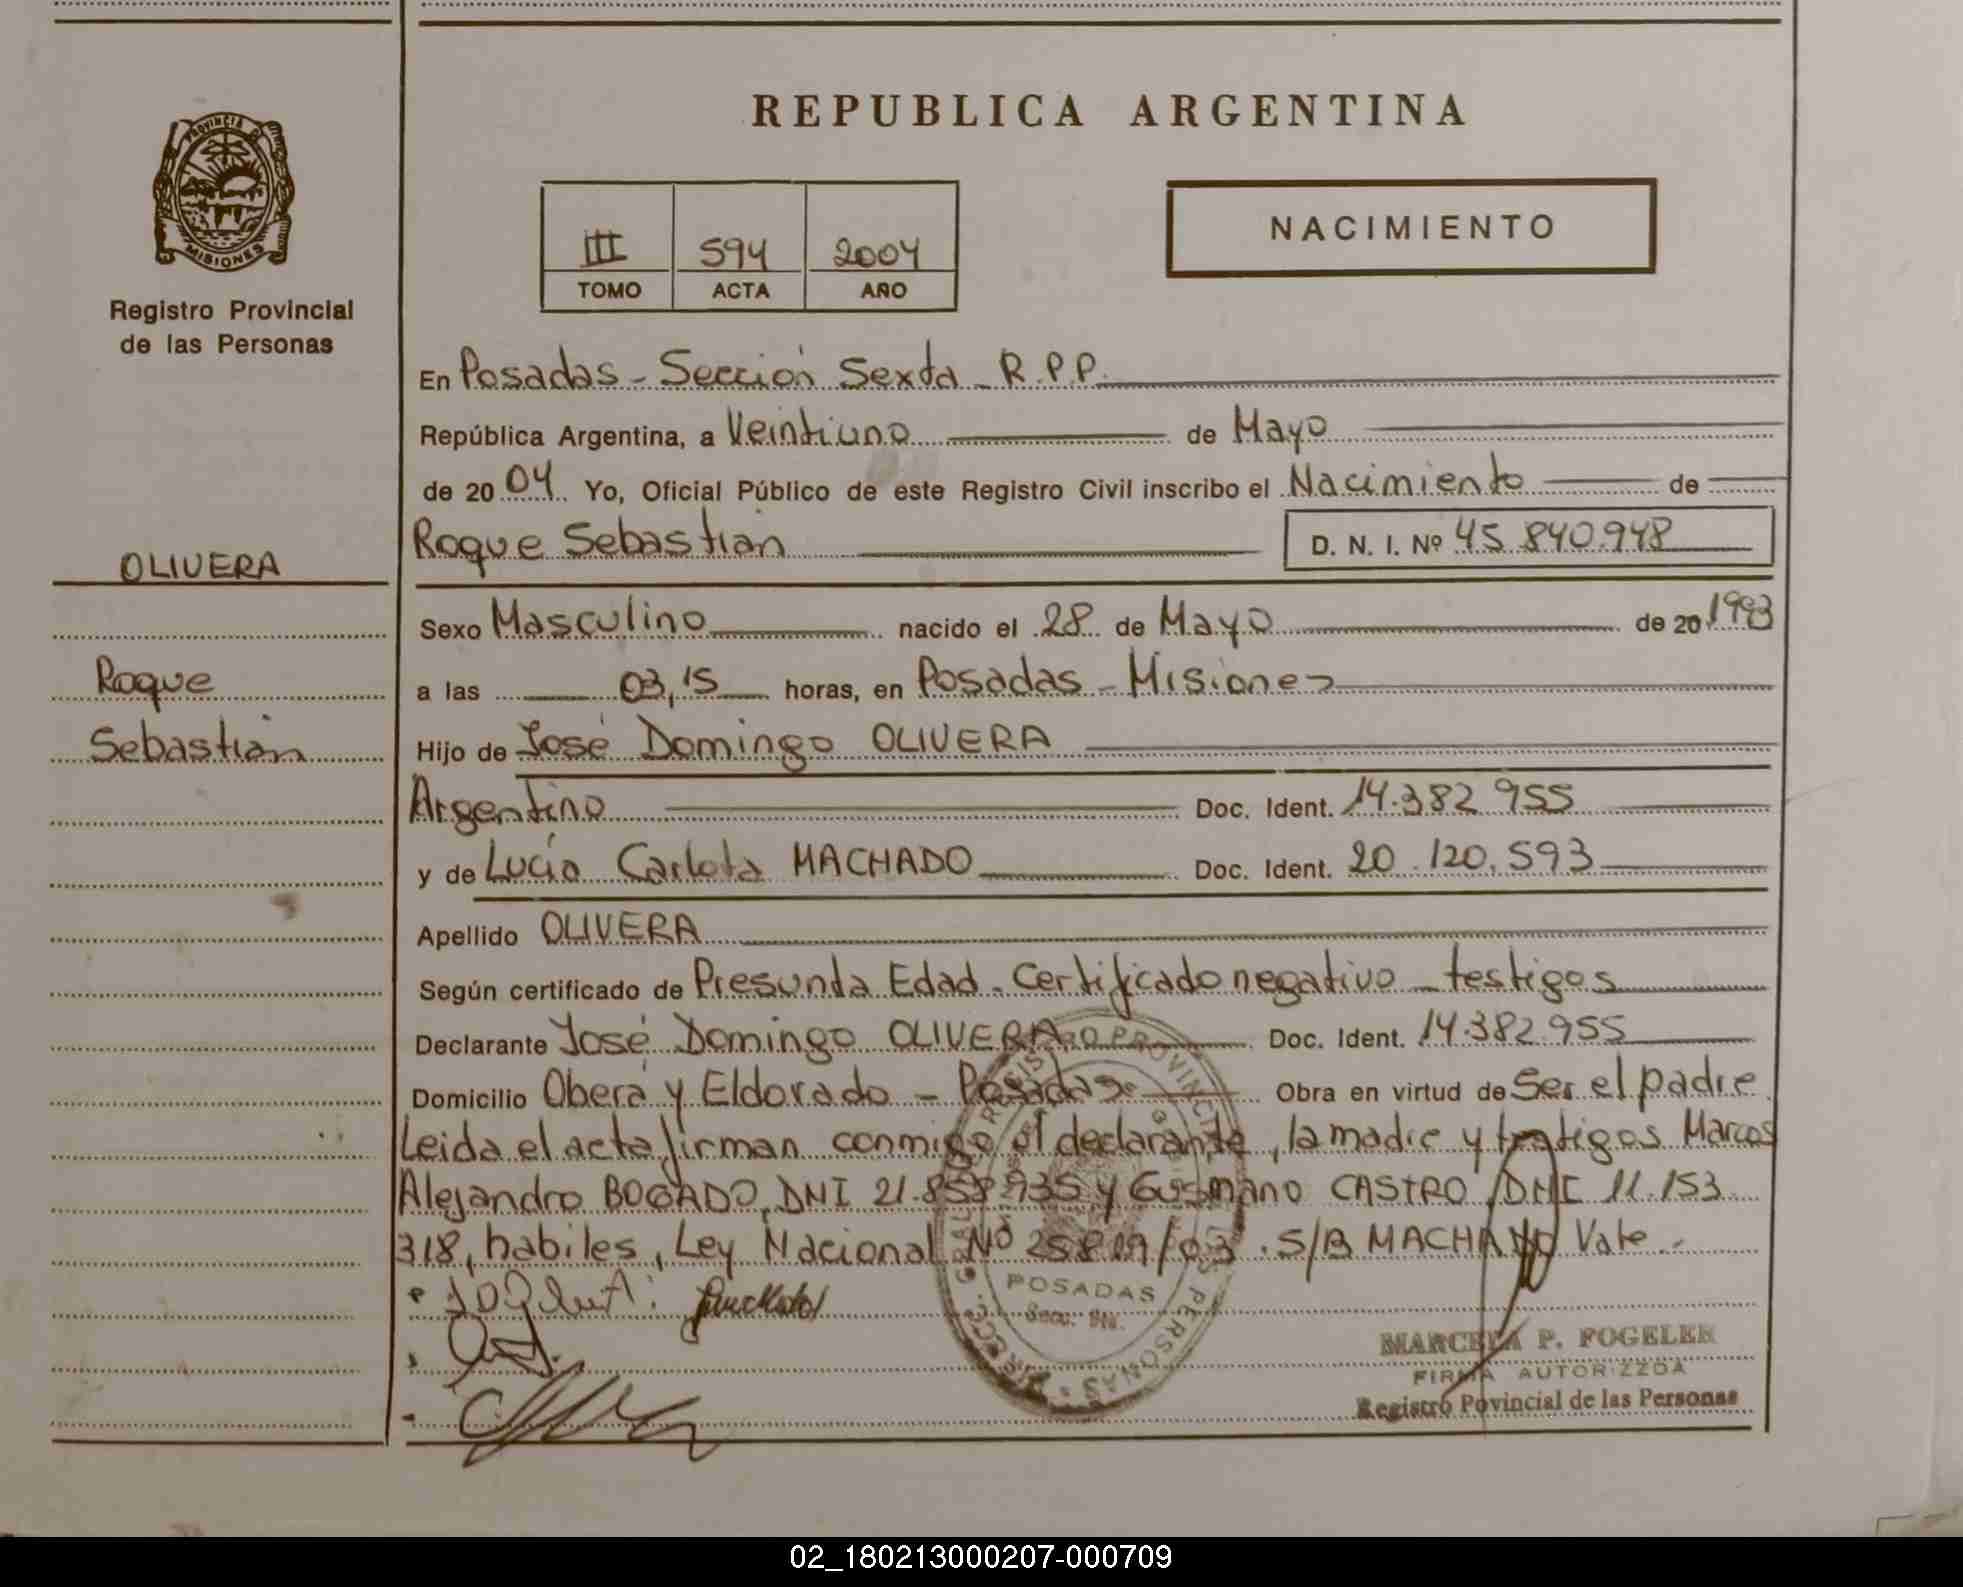 REPUBLICA ARGENTINA
PROVINCIA DE
MISIONES
Registro Provincial
de las Personas
III 594 2004
TOMO ACTA AÑO
NACIMIENTO
En Posadas - Sección Sexta - R.P.P.
República Argentina, a Veintiuno de Mayo
de 20 04 Yo, Oficial Público de este Registro Civil inscribo el Nacimiento de
Roque Sebastián D. N. I. Nº 45.840.948
OLIVERA
Roque
Sebastián
Sexo Masculino nacido el 28 de Mayo de 20 1993
a las 03,15 horas, en Posadas - Misiones
Hijo de José Domingo OLIVERA
Argentino Doc. Ident. 14.382.955
y de Lucia Carlota MACHADO Doc. Ident. 20.120.593
Apellido OLIVERA
Según certificado de Presunda Edad - Certificado negativo - testigos
Declarante José Domingo OLIVERA Doc. Ident. 14.382.955
Domicilio Oberá y Eldorado - Posadas Obra en virtud de Ser el padre
Leida el acta firman conmigo el declarante, la madre y testigos Marcos
Alejandro BOGADO, DNI 21.858.935 y Gusmano CASTRO, DNI 11.153
318, habiles, Ley Nacional Nº 25819/03. S/B MACHADO Vale.-
POSADAS
MARCELA P. FOGELER
FIRMA AUTORIZZDA
Registro Povincial de las Personas
02_180213000207-000709